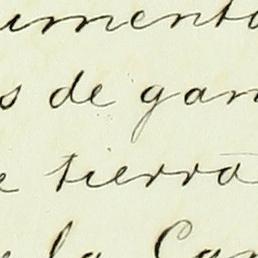 umento
s de gan
e tierra
e la Can